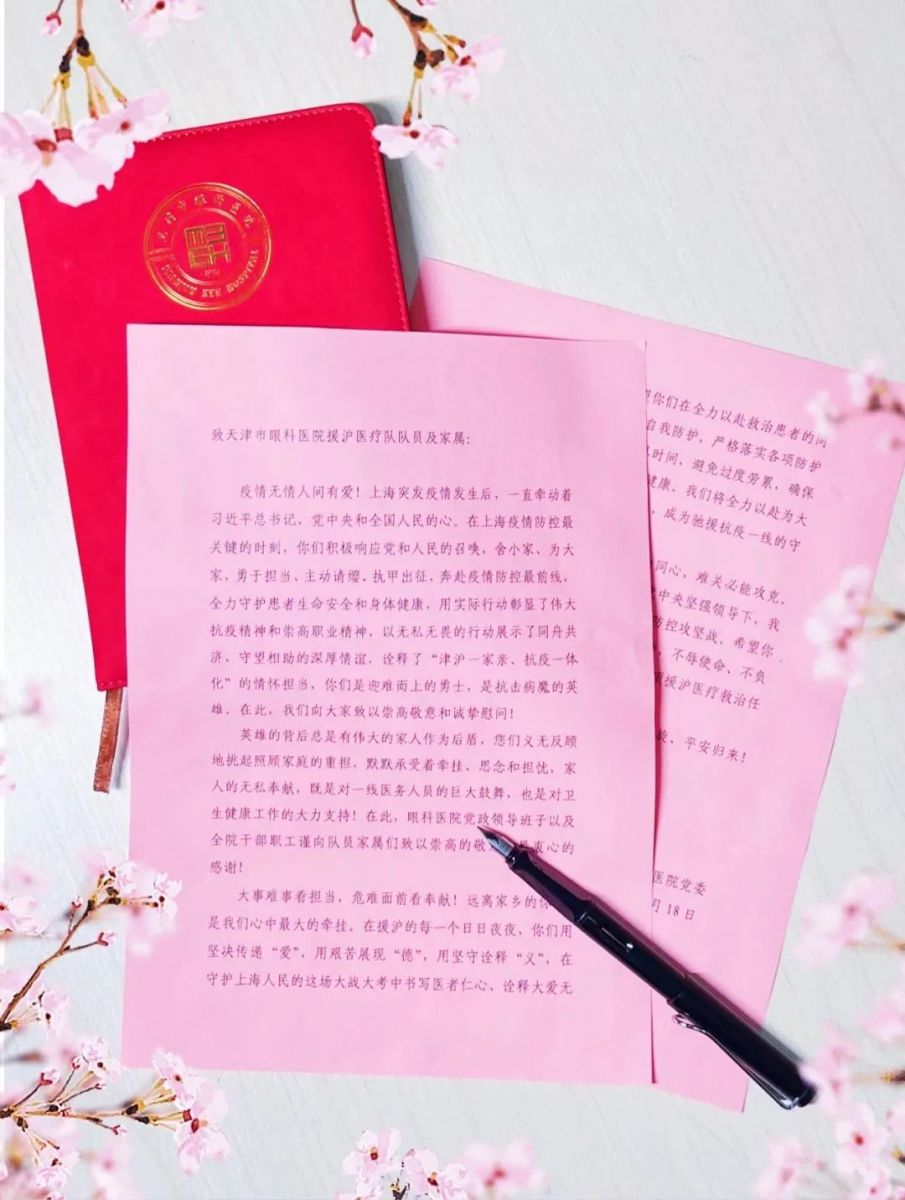 天津市眼科医院
TIANJIN EYE HOSPITAL
致天津市眼科医院援沪医疗队队员及家属：
疫情无情人间有爱！上海突发疫情发生后，一直牵动着
习近平总书记、党中央和全国人民的心。在上海疫情防控最
关键的时刻，你们积极响应党和人民的召唤，舍小家、为大
家，勇于担当、主动请缨、执甲出征，奔赴疫情防控最前线，
全力守护患者生命安全和身体健康，用实际行动彰显了伟大
抗疫精神和崇高职业精神，以无私无畏的行动展示了同舟共
济、守望相助的深厚情谊，诠释了“津沪一家亲、抗疫一体
化”的情怀担当，你们是迎难而上的勇士，是抗击病魔的英
雄。在此，我们向大家致以崇高敬意和诚挚慰问！
英雄的背后总是有伟大的家人作为后盾，您们义无反顾
地挑起照顾家庭的重担，默默承受着牵挂、思念和担忧，家
人的无私奉献，既是对一线医务人员的巨大鼓舞，也是对卫
生健康工作的大力支持！在此，眼科医院党政领导班子以及
全院干部职工谨向队员家属们致以崇高的敬 衷心的
感谢！
大事难事看担当，危难面前看奉献！远离家乡的你
是我们心中最大的牵挂。在援沪的每一个日日夜夜，你们用
坚决传递“爱”，用艰苦展现“德”，用坚守诠释“义”，在
守护上海人民的这场大战大考中书写医者仁心、诠释大爱无
你们在全力以赴救治患者的同
自我防护，严格落实各项防护
时间，避免过度劳累，确保
健康。我们将全力以赴为大
，成为驰援抗疫一线的守
同心，难关必能攻克。
中央坚强领导下，我
防控攻坚战。希望你
，不辱使命、不负
援沪医疗救治任
，平安归来！
医院党委
月18日